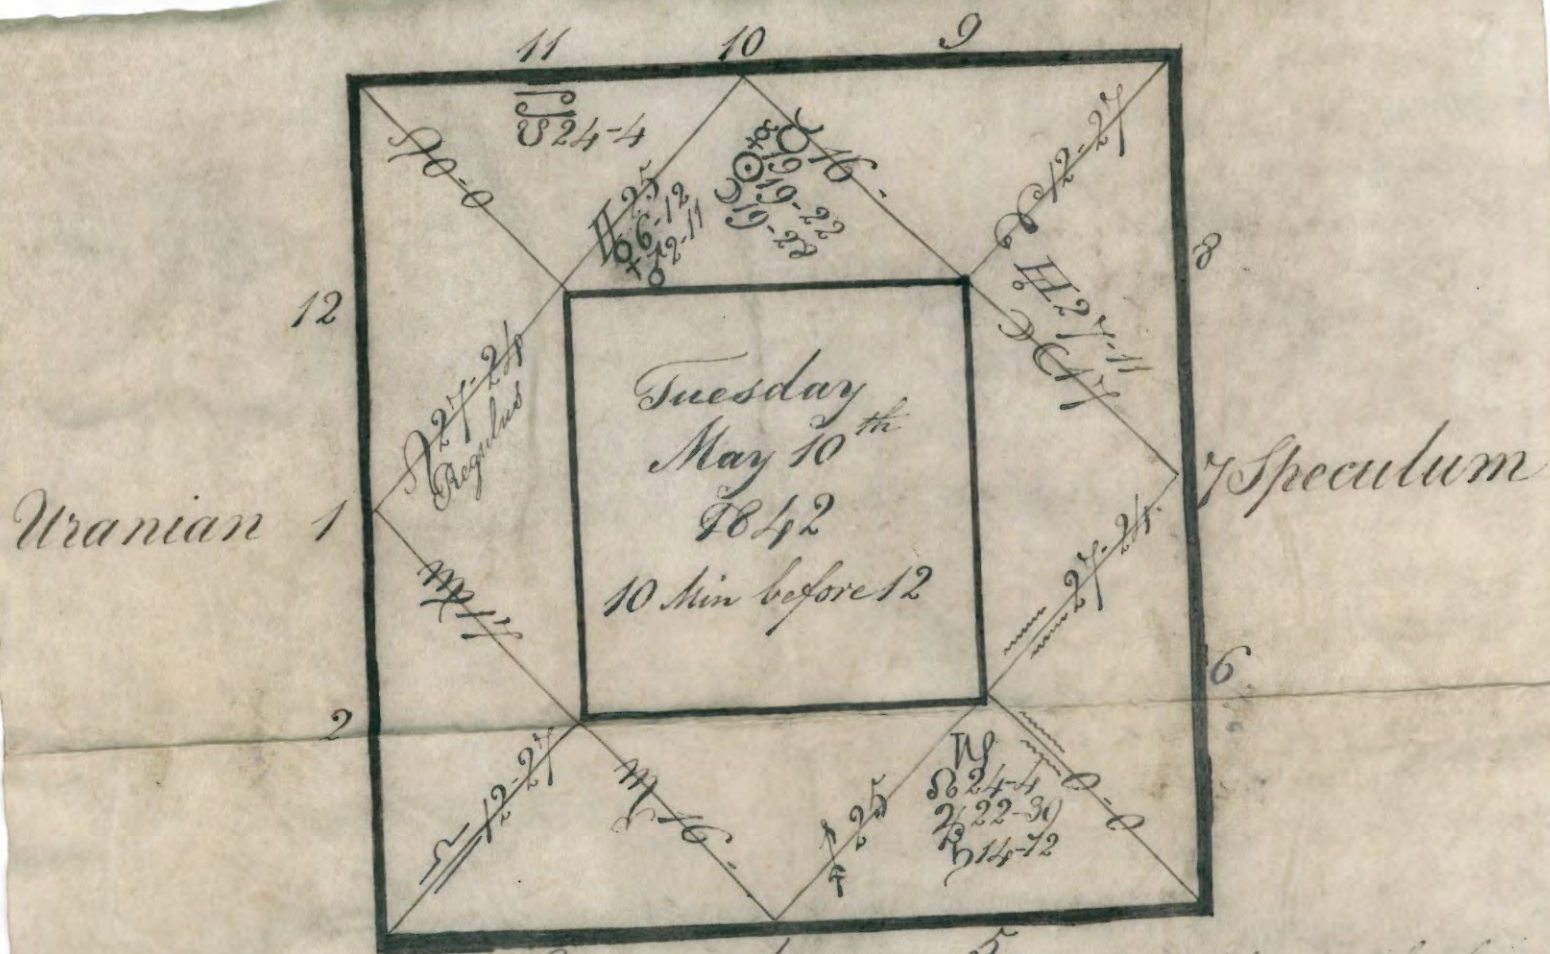 11 10 9
♋
☋ 24-4
♌ 0-0
♊ 25
♀ 6-12
♂ 12-11
♉ 16-
☿ 19
☉ 19-22
☽ 19-22
♈ 12-27
12
8
♅ 27-11
♓ 17
♌ 27-24
Regulus
Tuesday
May 10th
1842
10 Min before 12
Uranian 1
7 Speculum
♍ 17
♒ 27-24
2
6
♎ 12-27
♏ 16-
♐ 25
♑
☊ 24-4
♃ 22-39
♄ 14-12
♒ 0-0
5